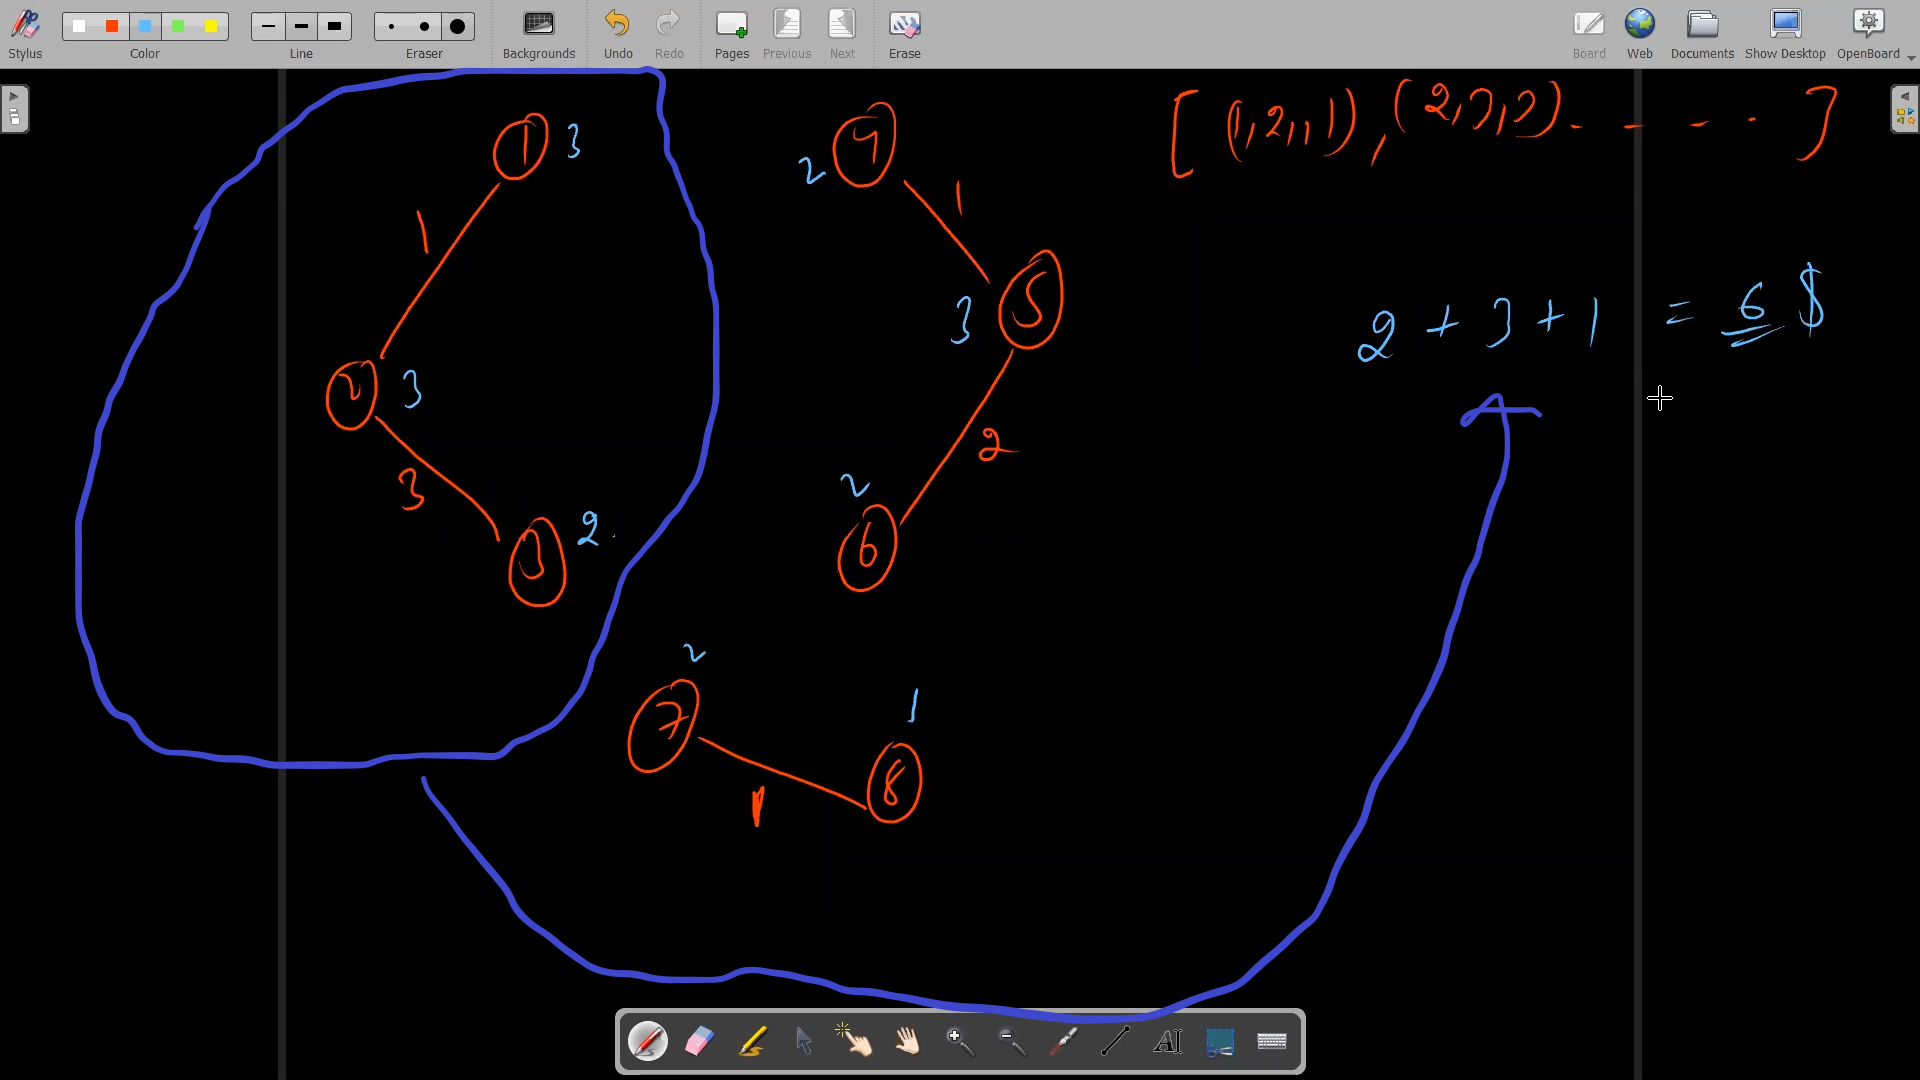 Stylus Color Line Eraser Backgrounds Undo Redo Pages Previous Next Erase Board Web Documents Show Desktop OpenBoard
[ (1,2,1), (2,3,3) - - - · ]
1 3
2 4
1
1
5
3
2 + 3 + 1 = 6 $
2 3
3
2
2
6
3 2
2
7
1
8
1
AI